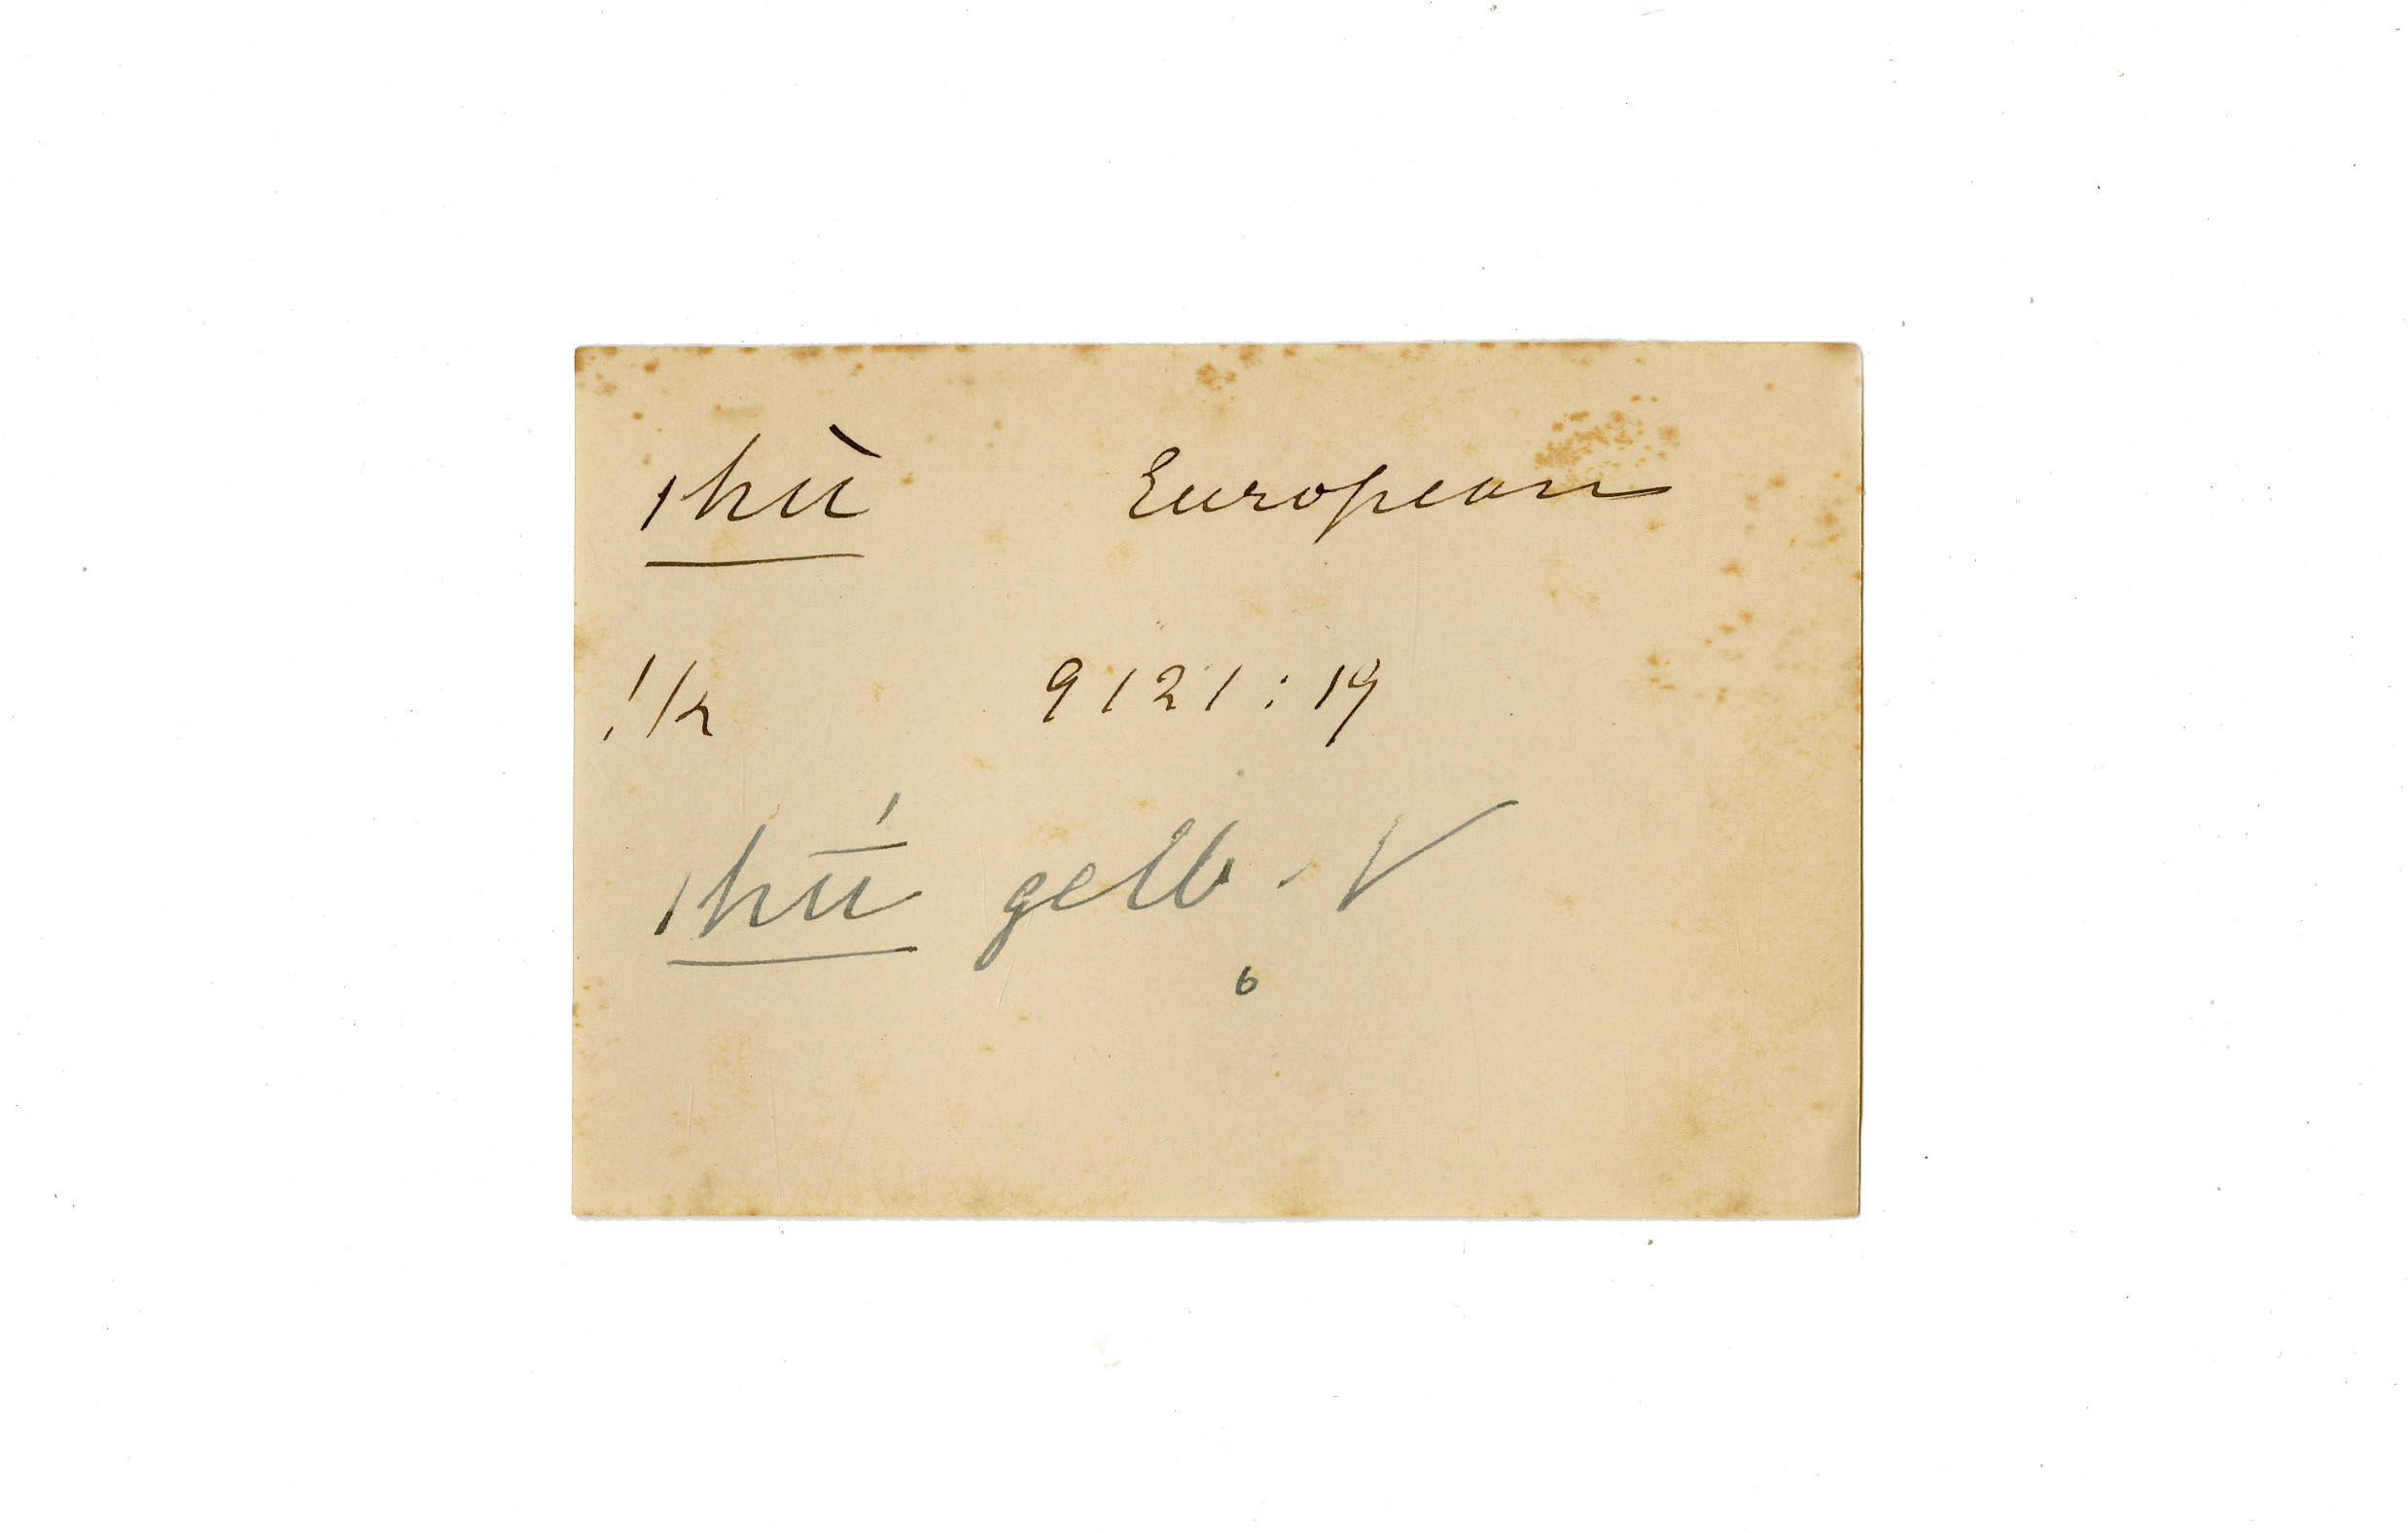 ǀhù European
!k 9121:19
ǀhū́ gelb. V
6